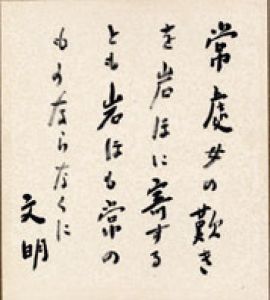 常處女の歎き
を岩ほに寄する
とも岩ほも常の
ものならなくに
文明